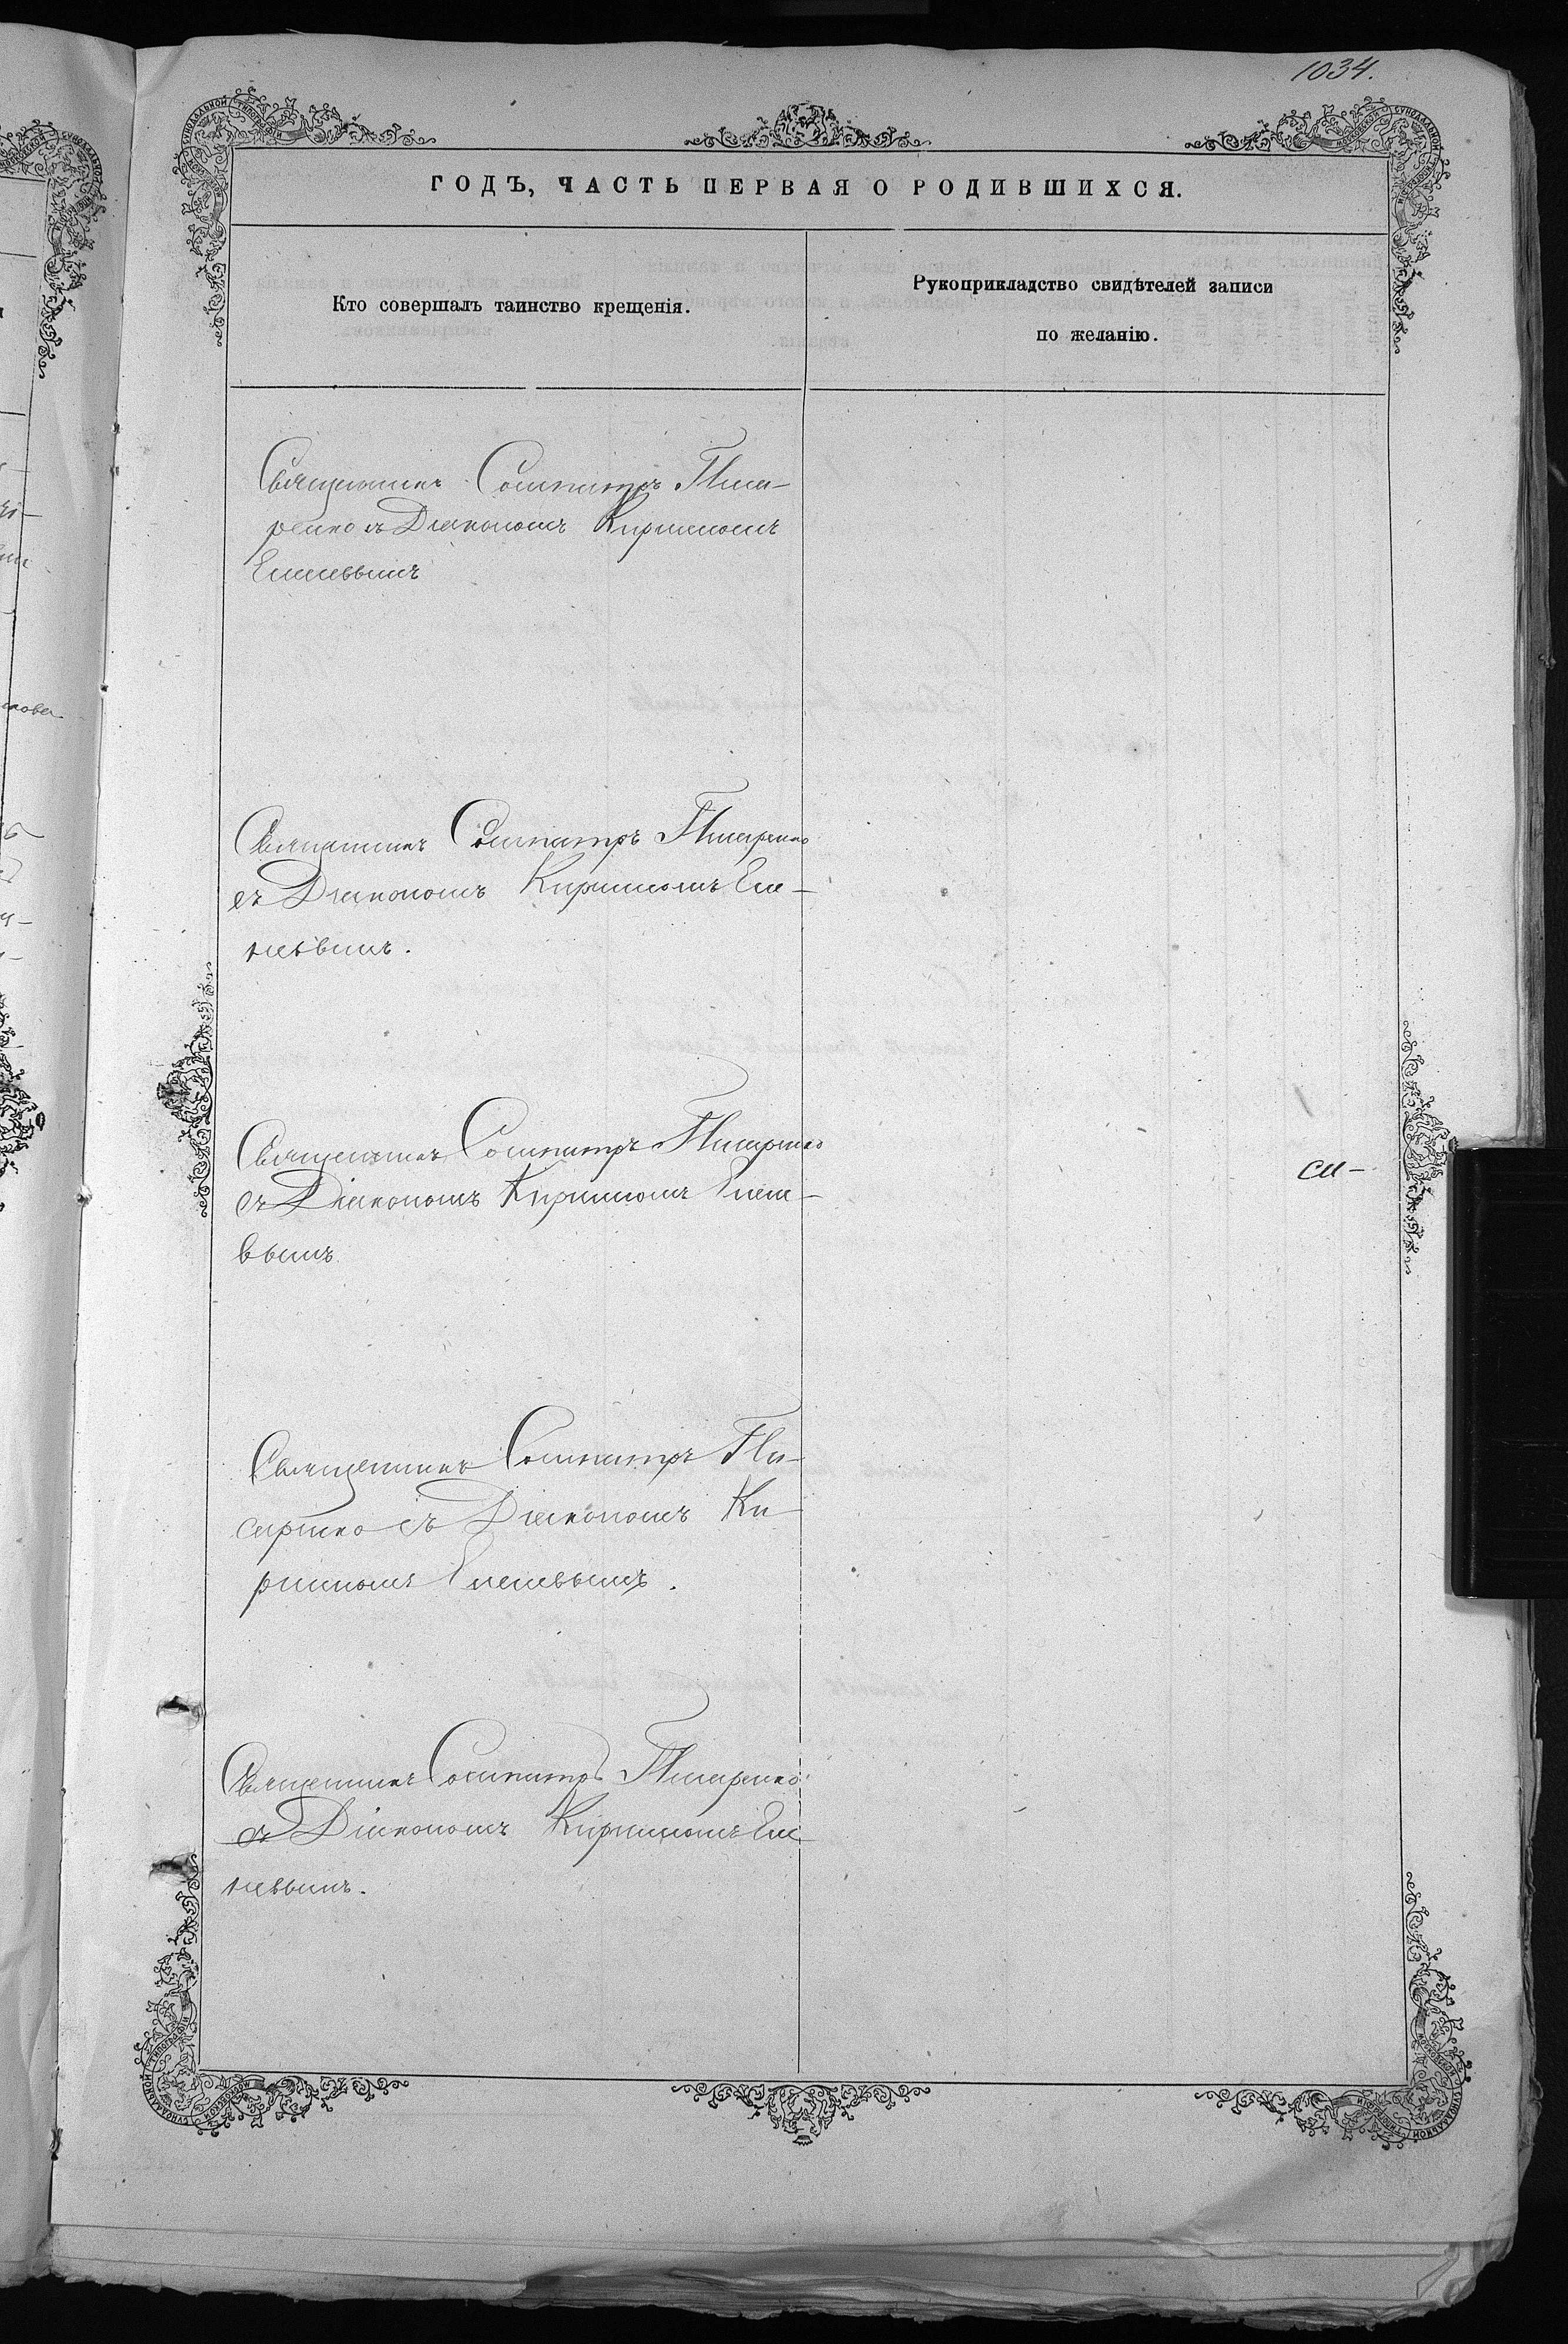 1034.
ГОДЪ, ЧАСТЬ ПЕРВАЯ О РОДИВШИХСЯ.
Кто совершалъ таинство крещенія.
Рукоприкладство свидѣтелей записи
по желанію.
Священникъ Сосипатръ Писа-
ренко съ Діакономъ Кириллом
Священникъ Сосипатръ Писаренко
съ Діакономъ Кирилломъ
Священникъ Сосипатръ Писаренко
съ Діакономъ Кирилломъ
вымъ
Священникъ Сосипатръ Пи-
саренко съ Діакономъ Ки-
рилломъ
Священникъ Сосипатръ Писаренко
съ Діакономъ Кирилломъ